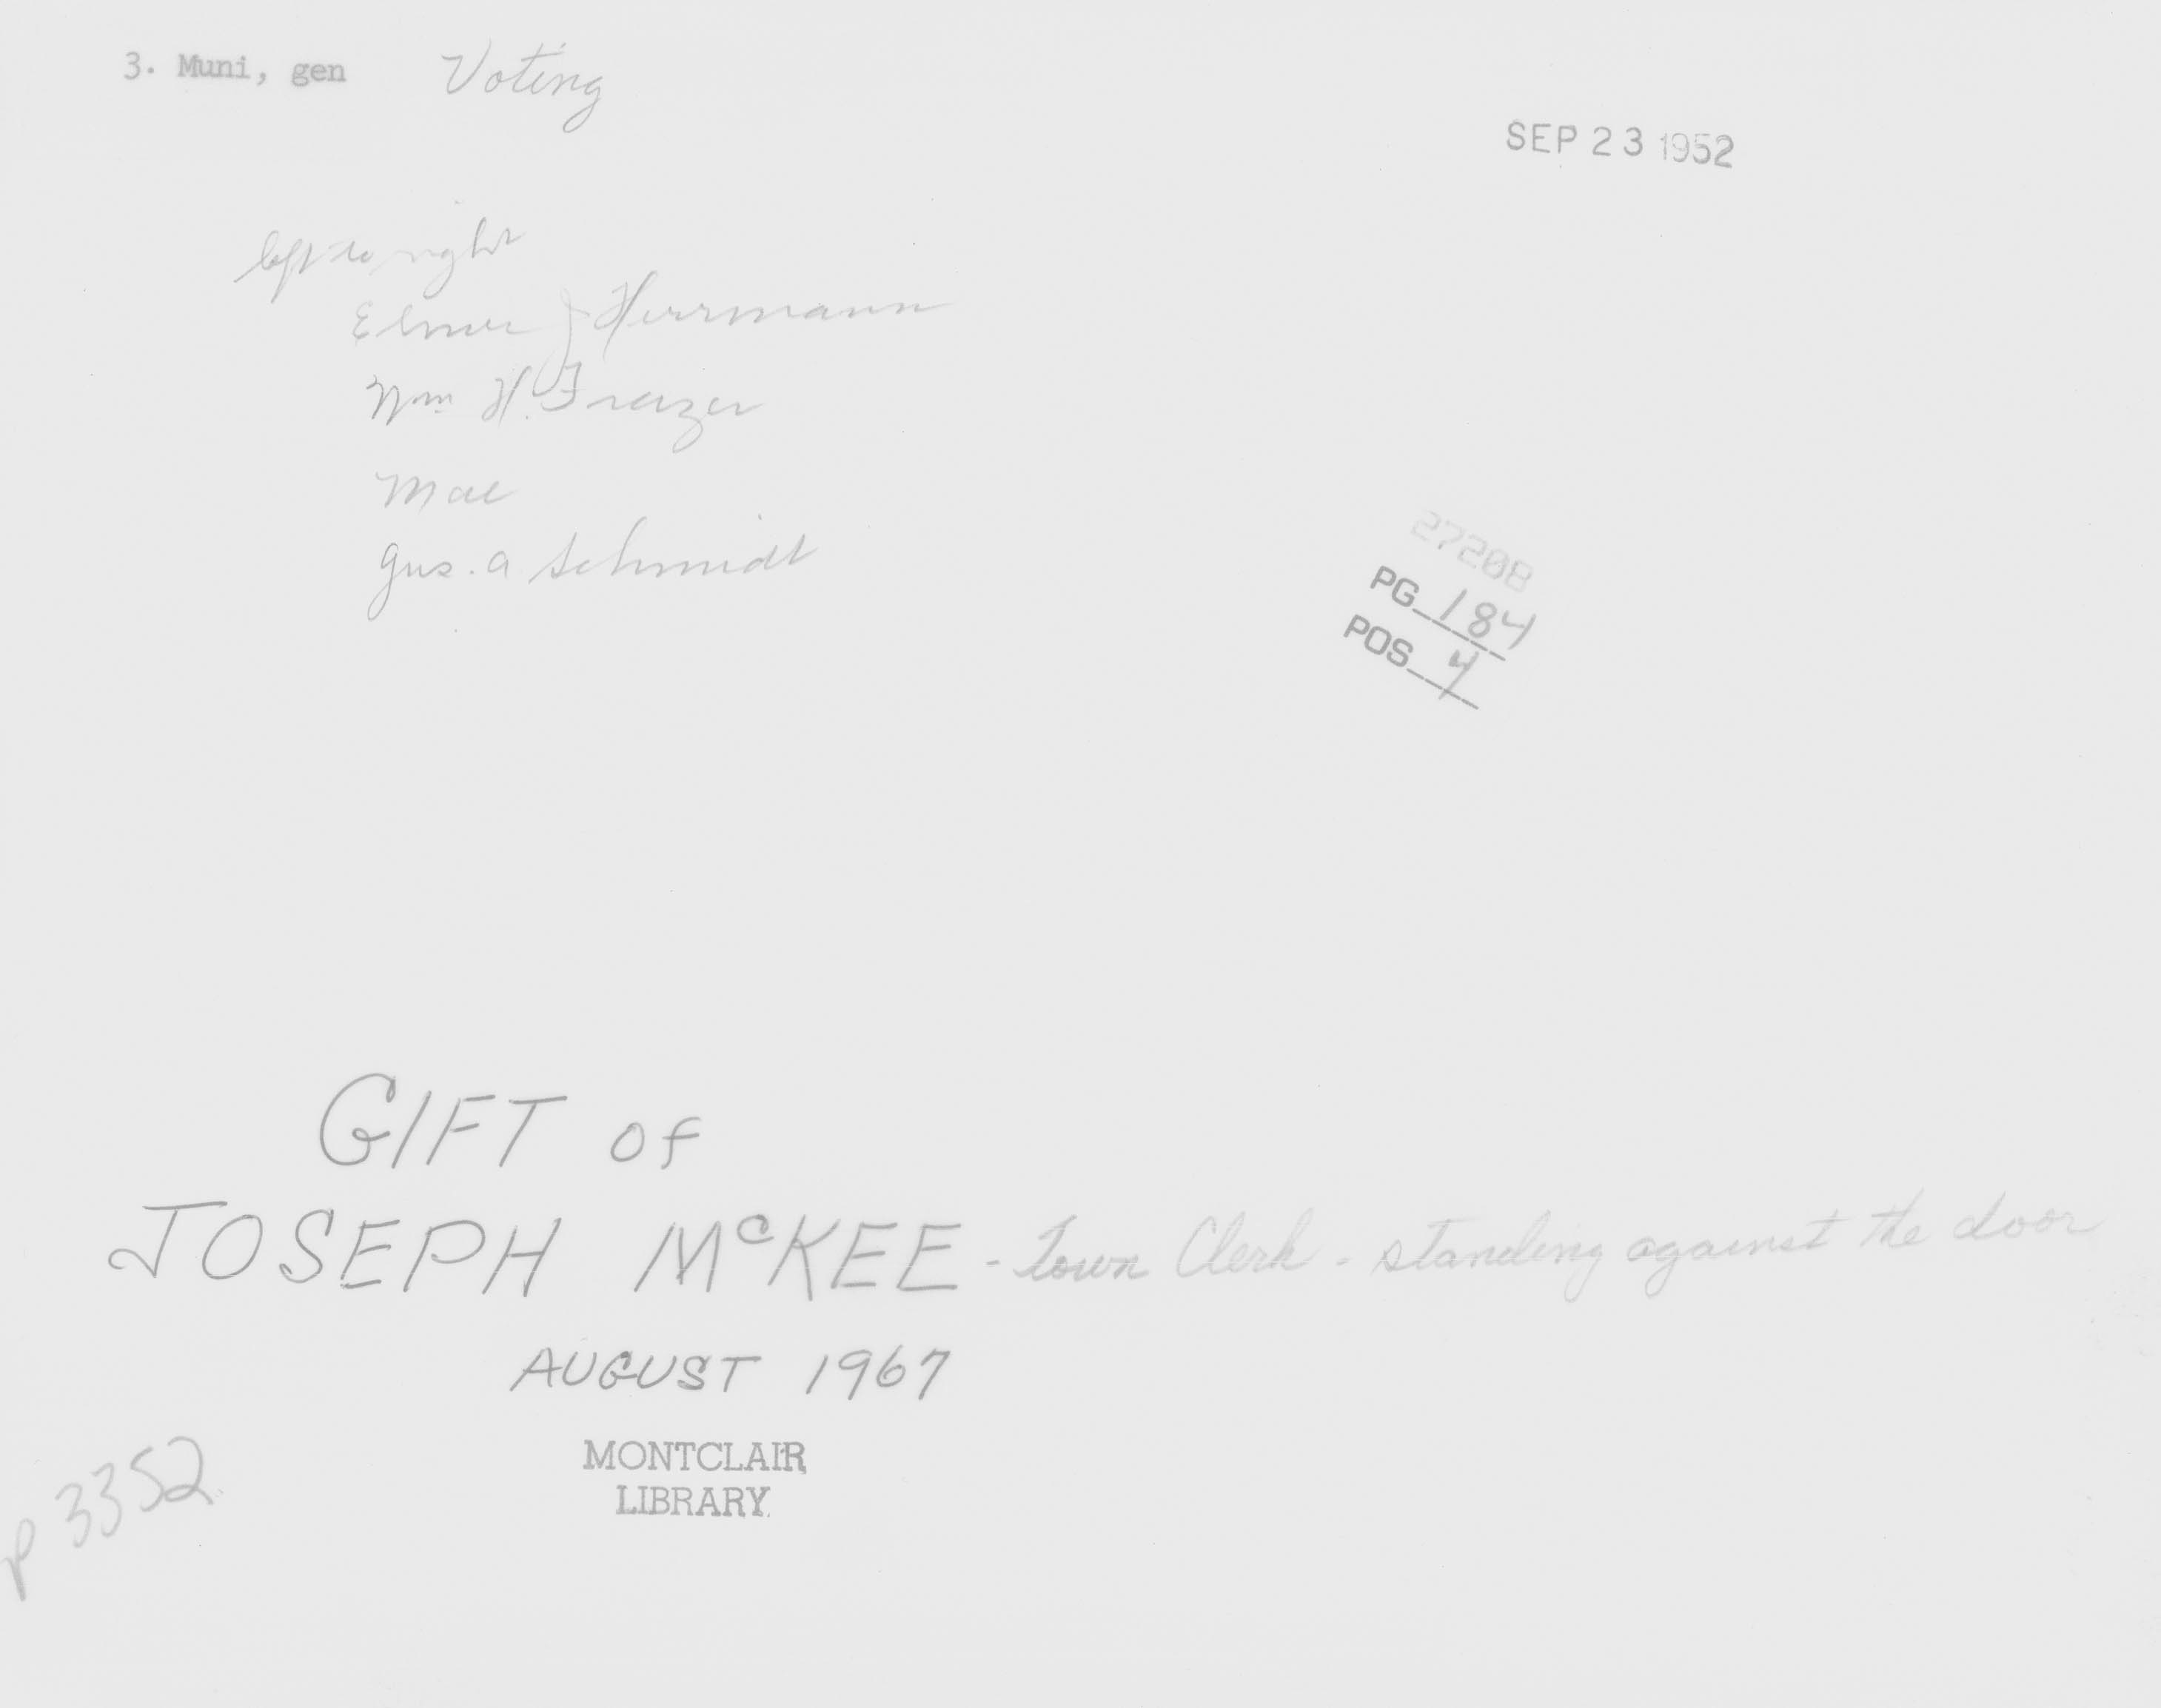 3. Muni, gen Voting
SEP 23 1952
left to right
Elmer J Herrmann
Wm H. Frazer
Mac
Gus. A Schmidt
27208
PG 184
POS 4
GIFT of
JOSEPH McKEE - Town Clerk - standing against the door
AUGUST 1967
MONTCLAIR
LIBRARY
P 3352